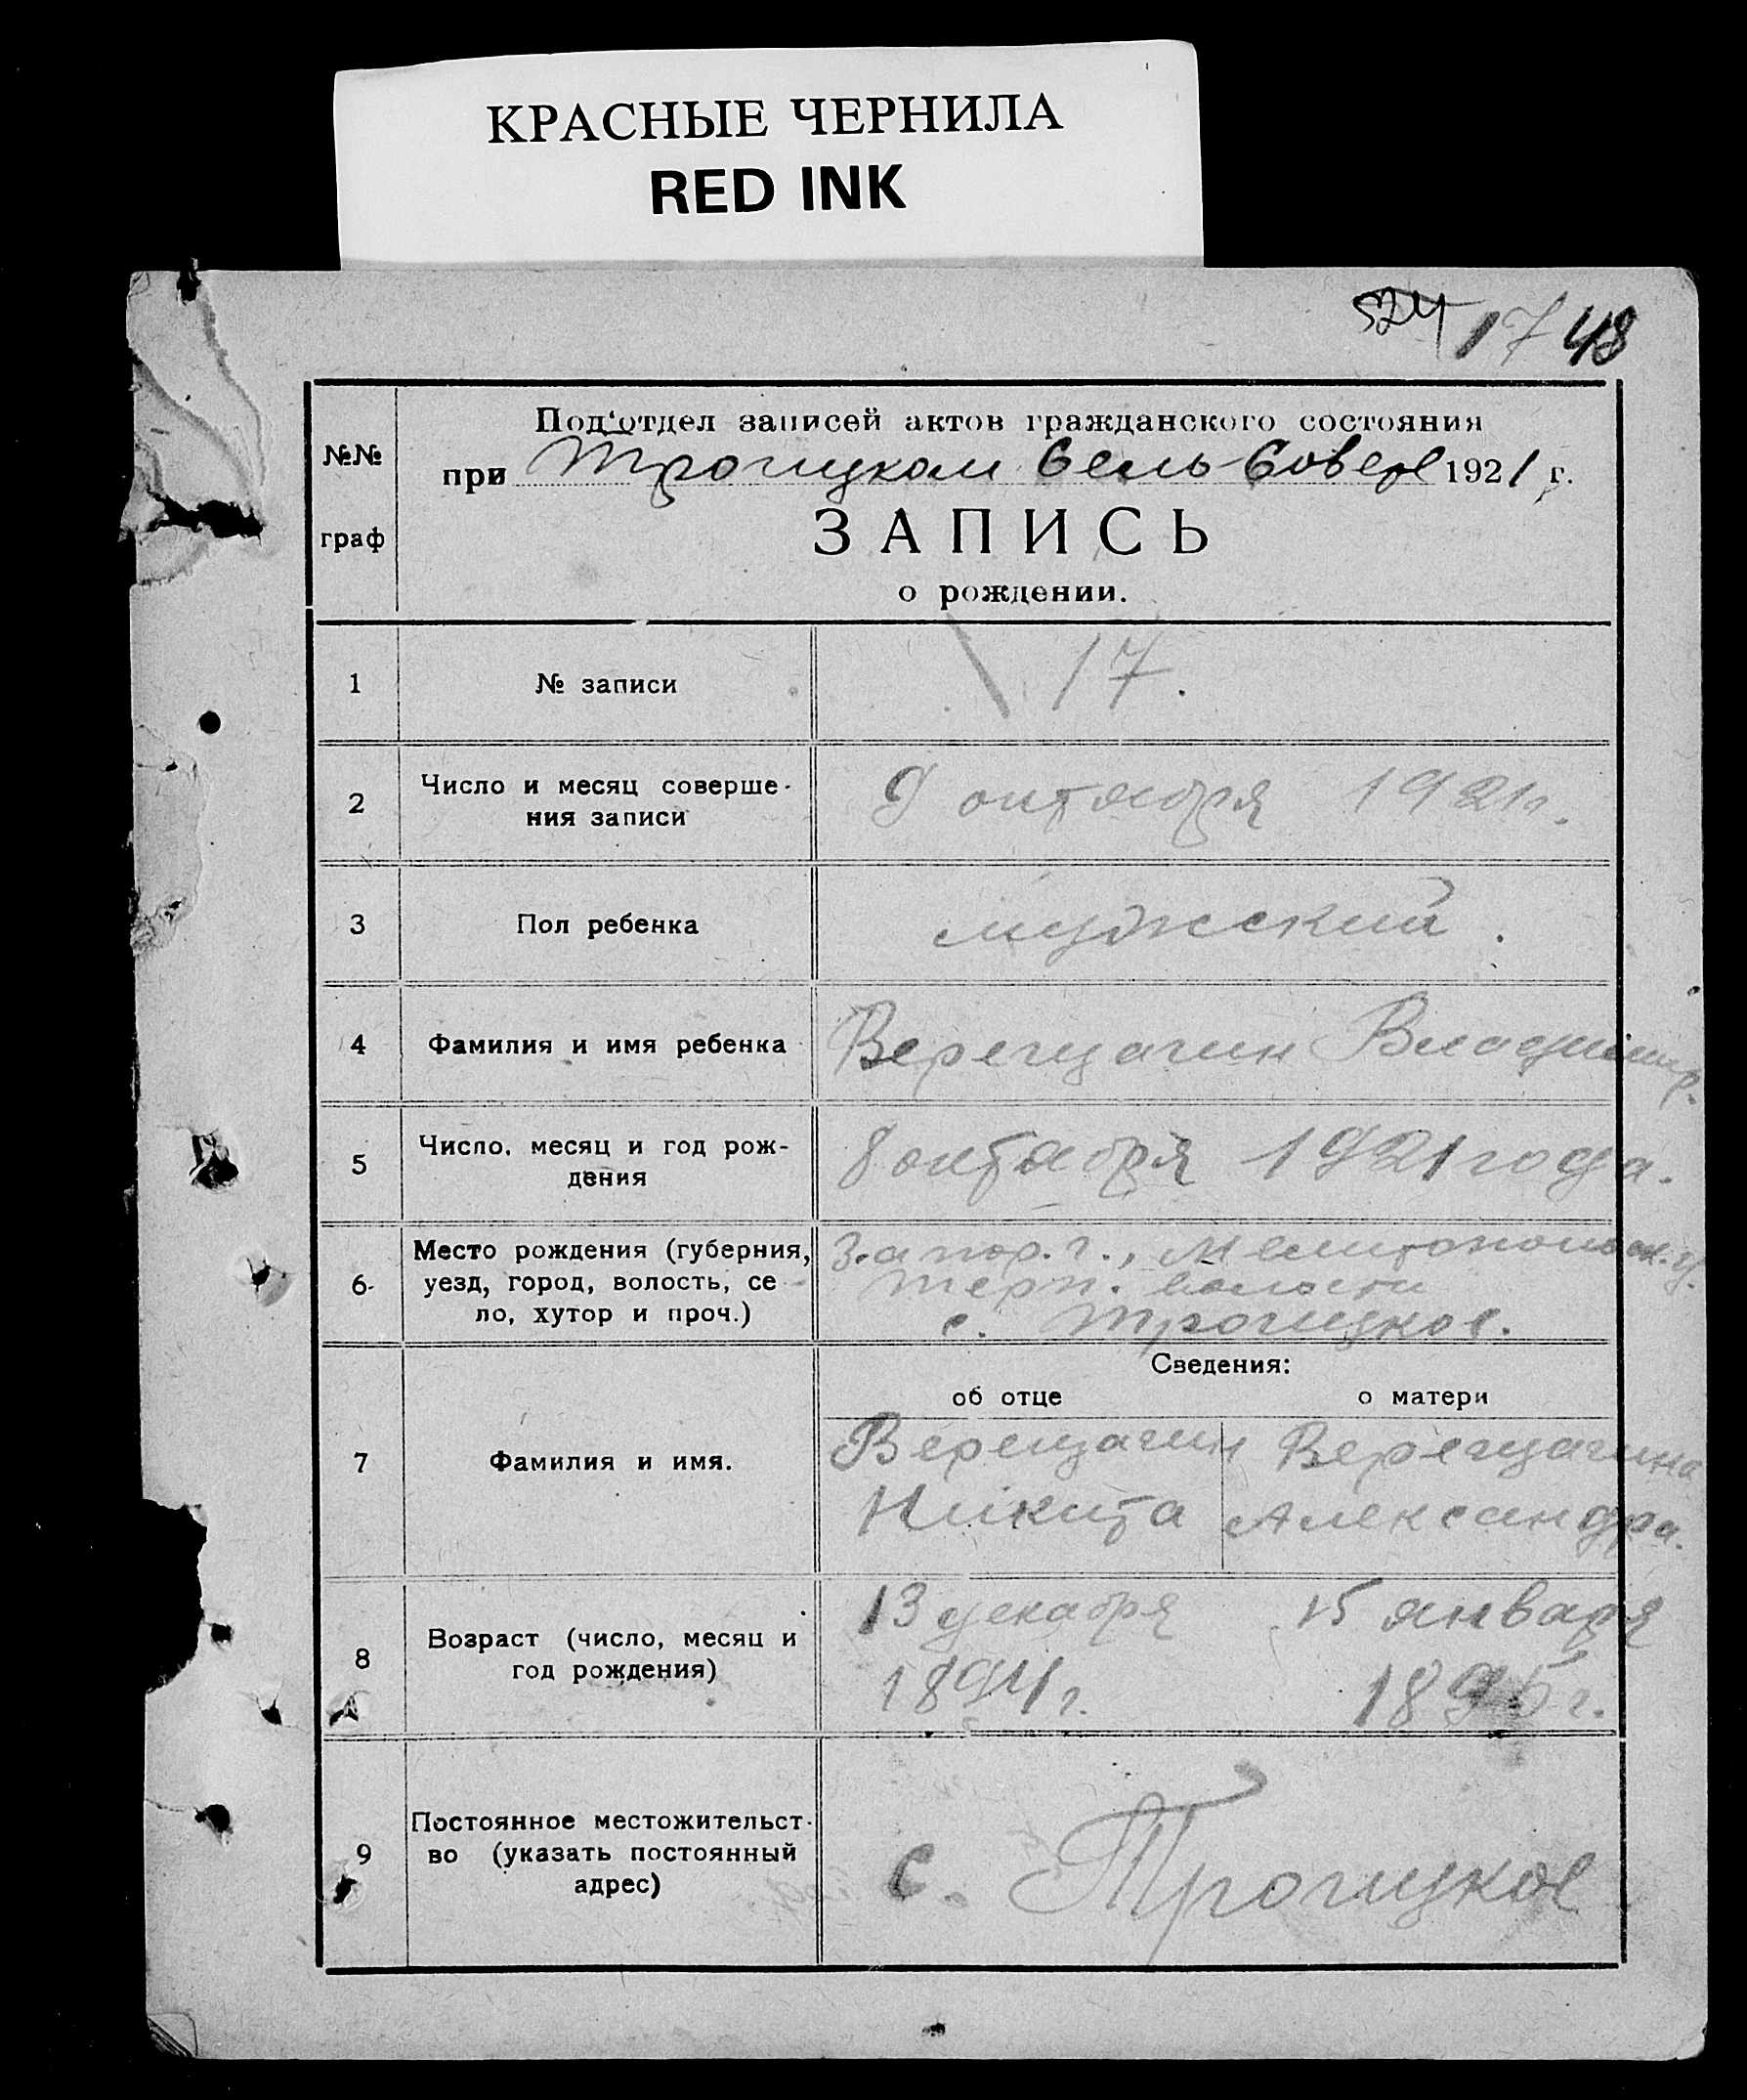 КРАСНЫЕ ЧЕРНИЛА
RED INK
524 17 48
№№
граф
Под'отдел записей актов гражданского состояния
при Троицком Сель-Совете 1921 г.
ЗАПИСЬ
о рождении.
1 № записи 17.
2 Число и месяц соверше-
ния записи
9 октября 1921 г.
3 Пол ребенка мужский.
4 Фамилия и имя ребенка Верещагин Владимир.
5 Число, месяц и год рож-
дения
8 октября 1921 года.
6 Место рождения (губерния,
уезд, город, волость, се-
ло, хутор и проч.)
Запор. г., Мелитопольск. у.
Терп. волости
с. Троицкое.
Сведения:
об отце о матери
7 Фамилия и имя.
Верещагин Верещагина
Никита Александра.
8 Возраст (число, месяц и
год рождения)
13 декабря 15 января
1894 г. 1895 г.
9 Постоянное местожительст-
во (указать постоянный
адрес)
с. Троицкое